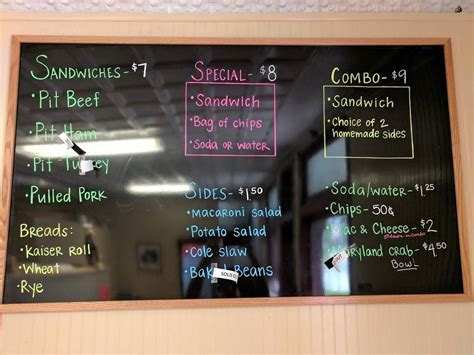 SANDWICHES - $7
• Pit Beef
• Pit Ham
• Pit Turkey
• Pulled Pork
BREADS:
• Kaiser Roll
• Wheat
• Rye
SPECIAL - $8
• Sandwich
• Bag of chips
• Soda or water
SIDES - $1.50
• Macaroni salad
• Potato salad
• Cole slaw
• Baked Beans
SOLD
COMBO - $9
• Sandwich
• Choice of 2
homemade sides
• Soda/water - $1.25
• Chips - 50¢
• Mac & Cheese - $2
• Maryland crab - $4.50
BOWL